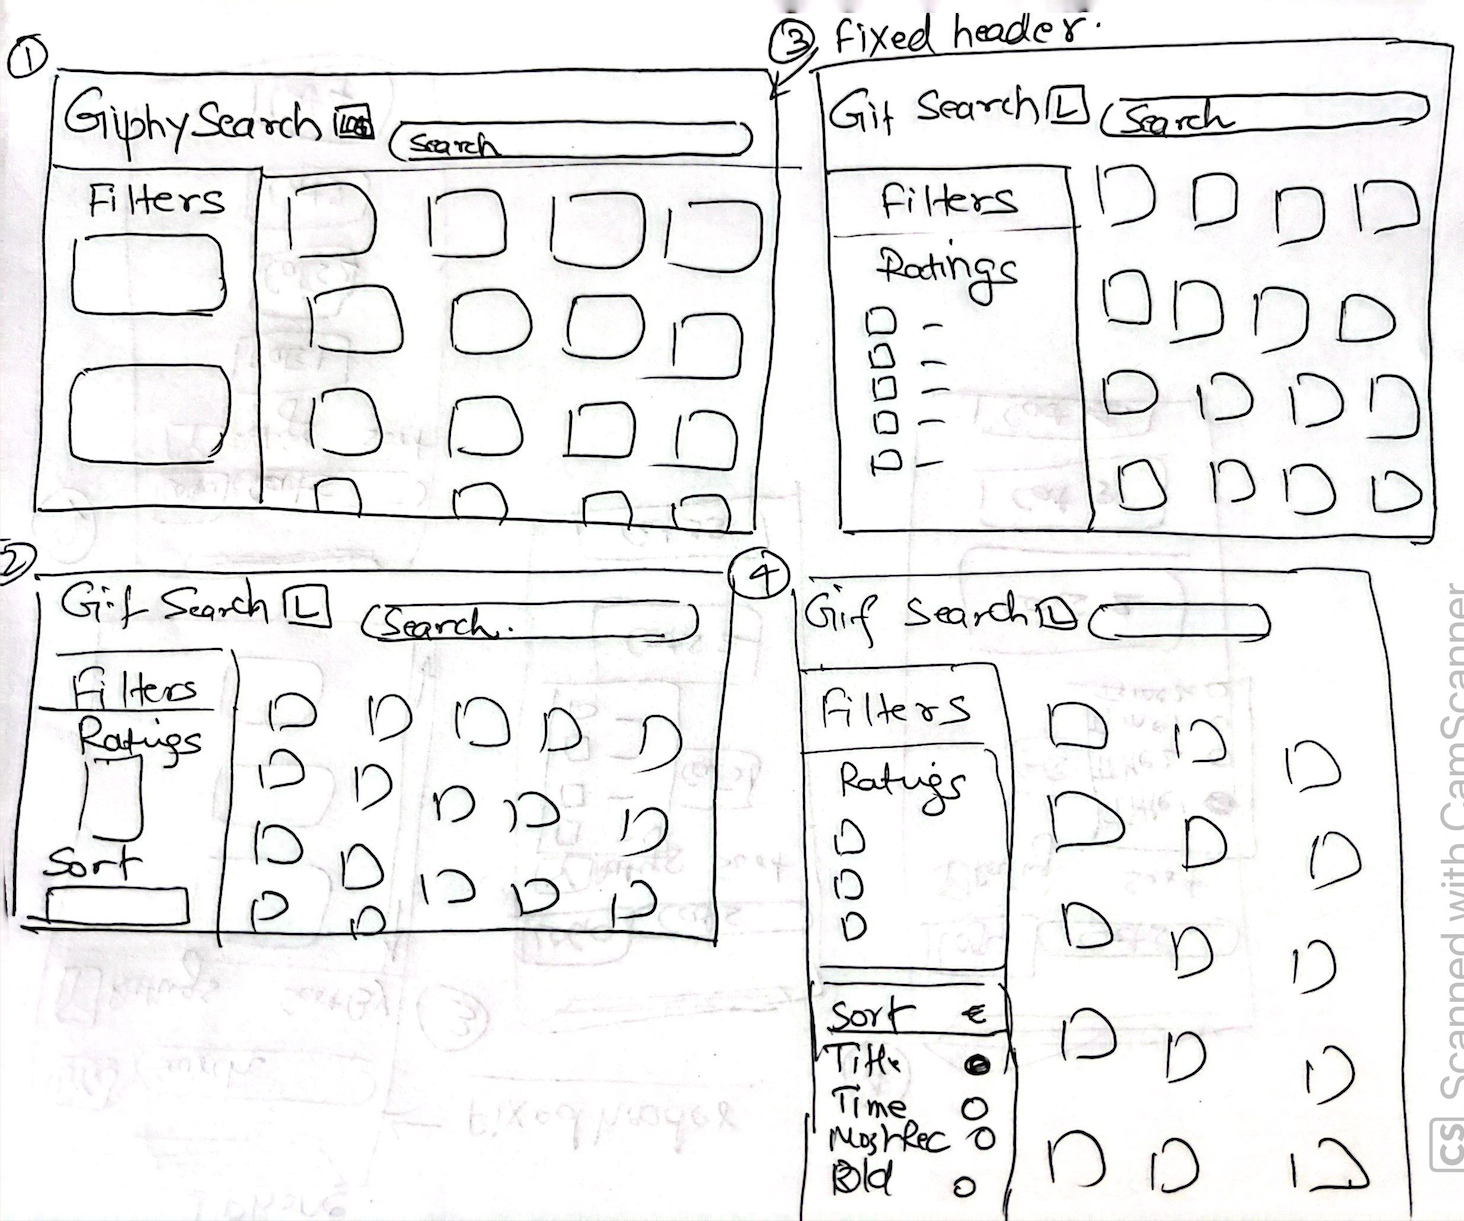 ①
Giphy Search Logo
Search
Filters
③ Fixed header.
Gif Search L
Search
Filters
Ratings
②
Gif Search L
Search.
Filters
Ratings
Sort
④
Gif Search L
Filters
Ratings
Sort
Title
Time
Most Rec
Old
CS Scanned with CamScanner